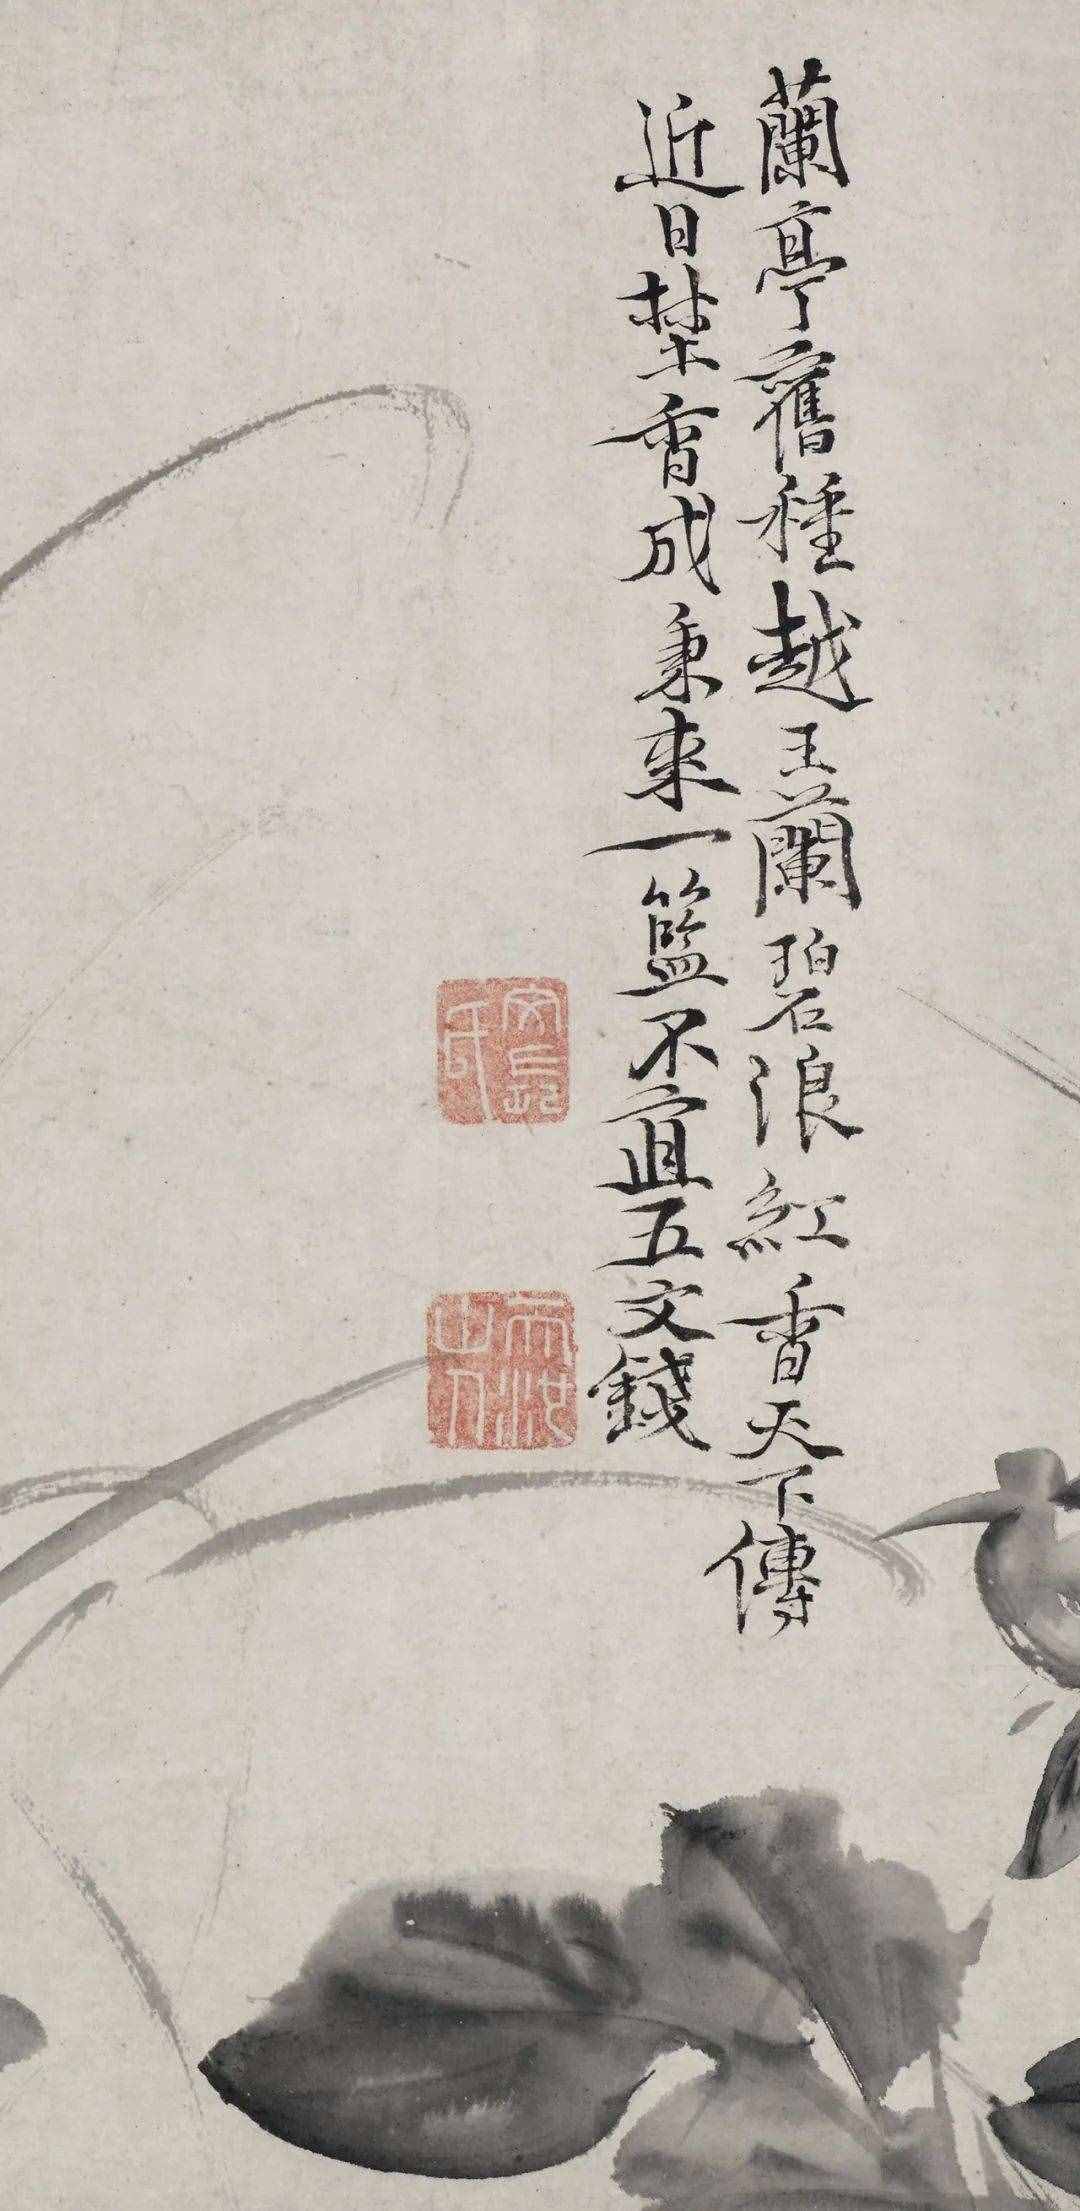 蘭亭舊種越王蘭碧浪紅香天下傳
近日埜香成秉束一籃不直五文錢
天池山人